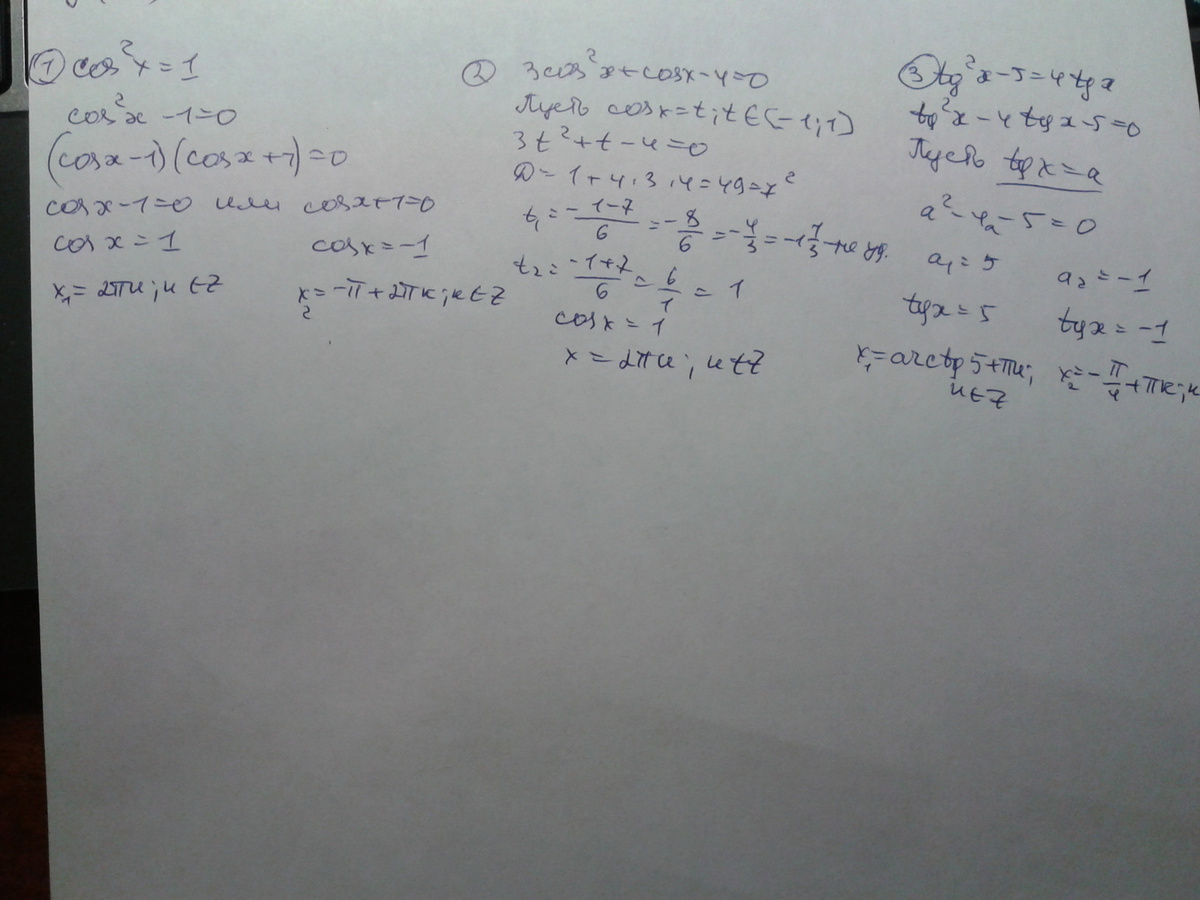 ① cos²x = 1
cos²x - 1 = 0
(cosx - 1)(cosx + 1) = 0
cosx - 1 = 0 или cosx + 1 = 0
cos x = 1 cosx = -1
x₁ = 2πn; n ∈ Z x₂ = -π + 2πk; k ∈ Z
② 3cos²x + cosx - 4 = 0
Пусть cosx = t; t ∈ [-1; 1]
3t² + t - 4 = 0
D = 1 + 4·3·4 = 49 = 7²
t₁ = (-1-7)/6 = -8/6 = -4/3 = -1 1/3 - не уд.
t₂ = (-1+7)/6 = 6/1 = 1
cosx = 1
x = 2πn; n ∈ Z
③ tg²x - 5 = 4tgx
tg²x - 4tgx - 5 = 0
Пусть tgx = a
a² - 4a - 5 = 0
a₁ = 5 a₂ = -1
tgx = 5 tgx = -1
x₁ = arctg5 + πn; n ∈ Z x₂ = -π/4 + πk; к